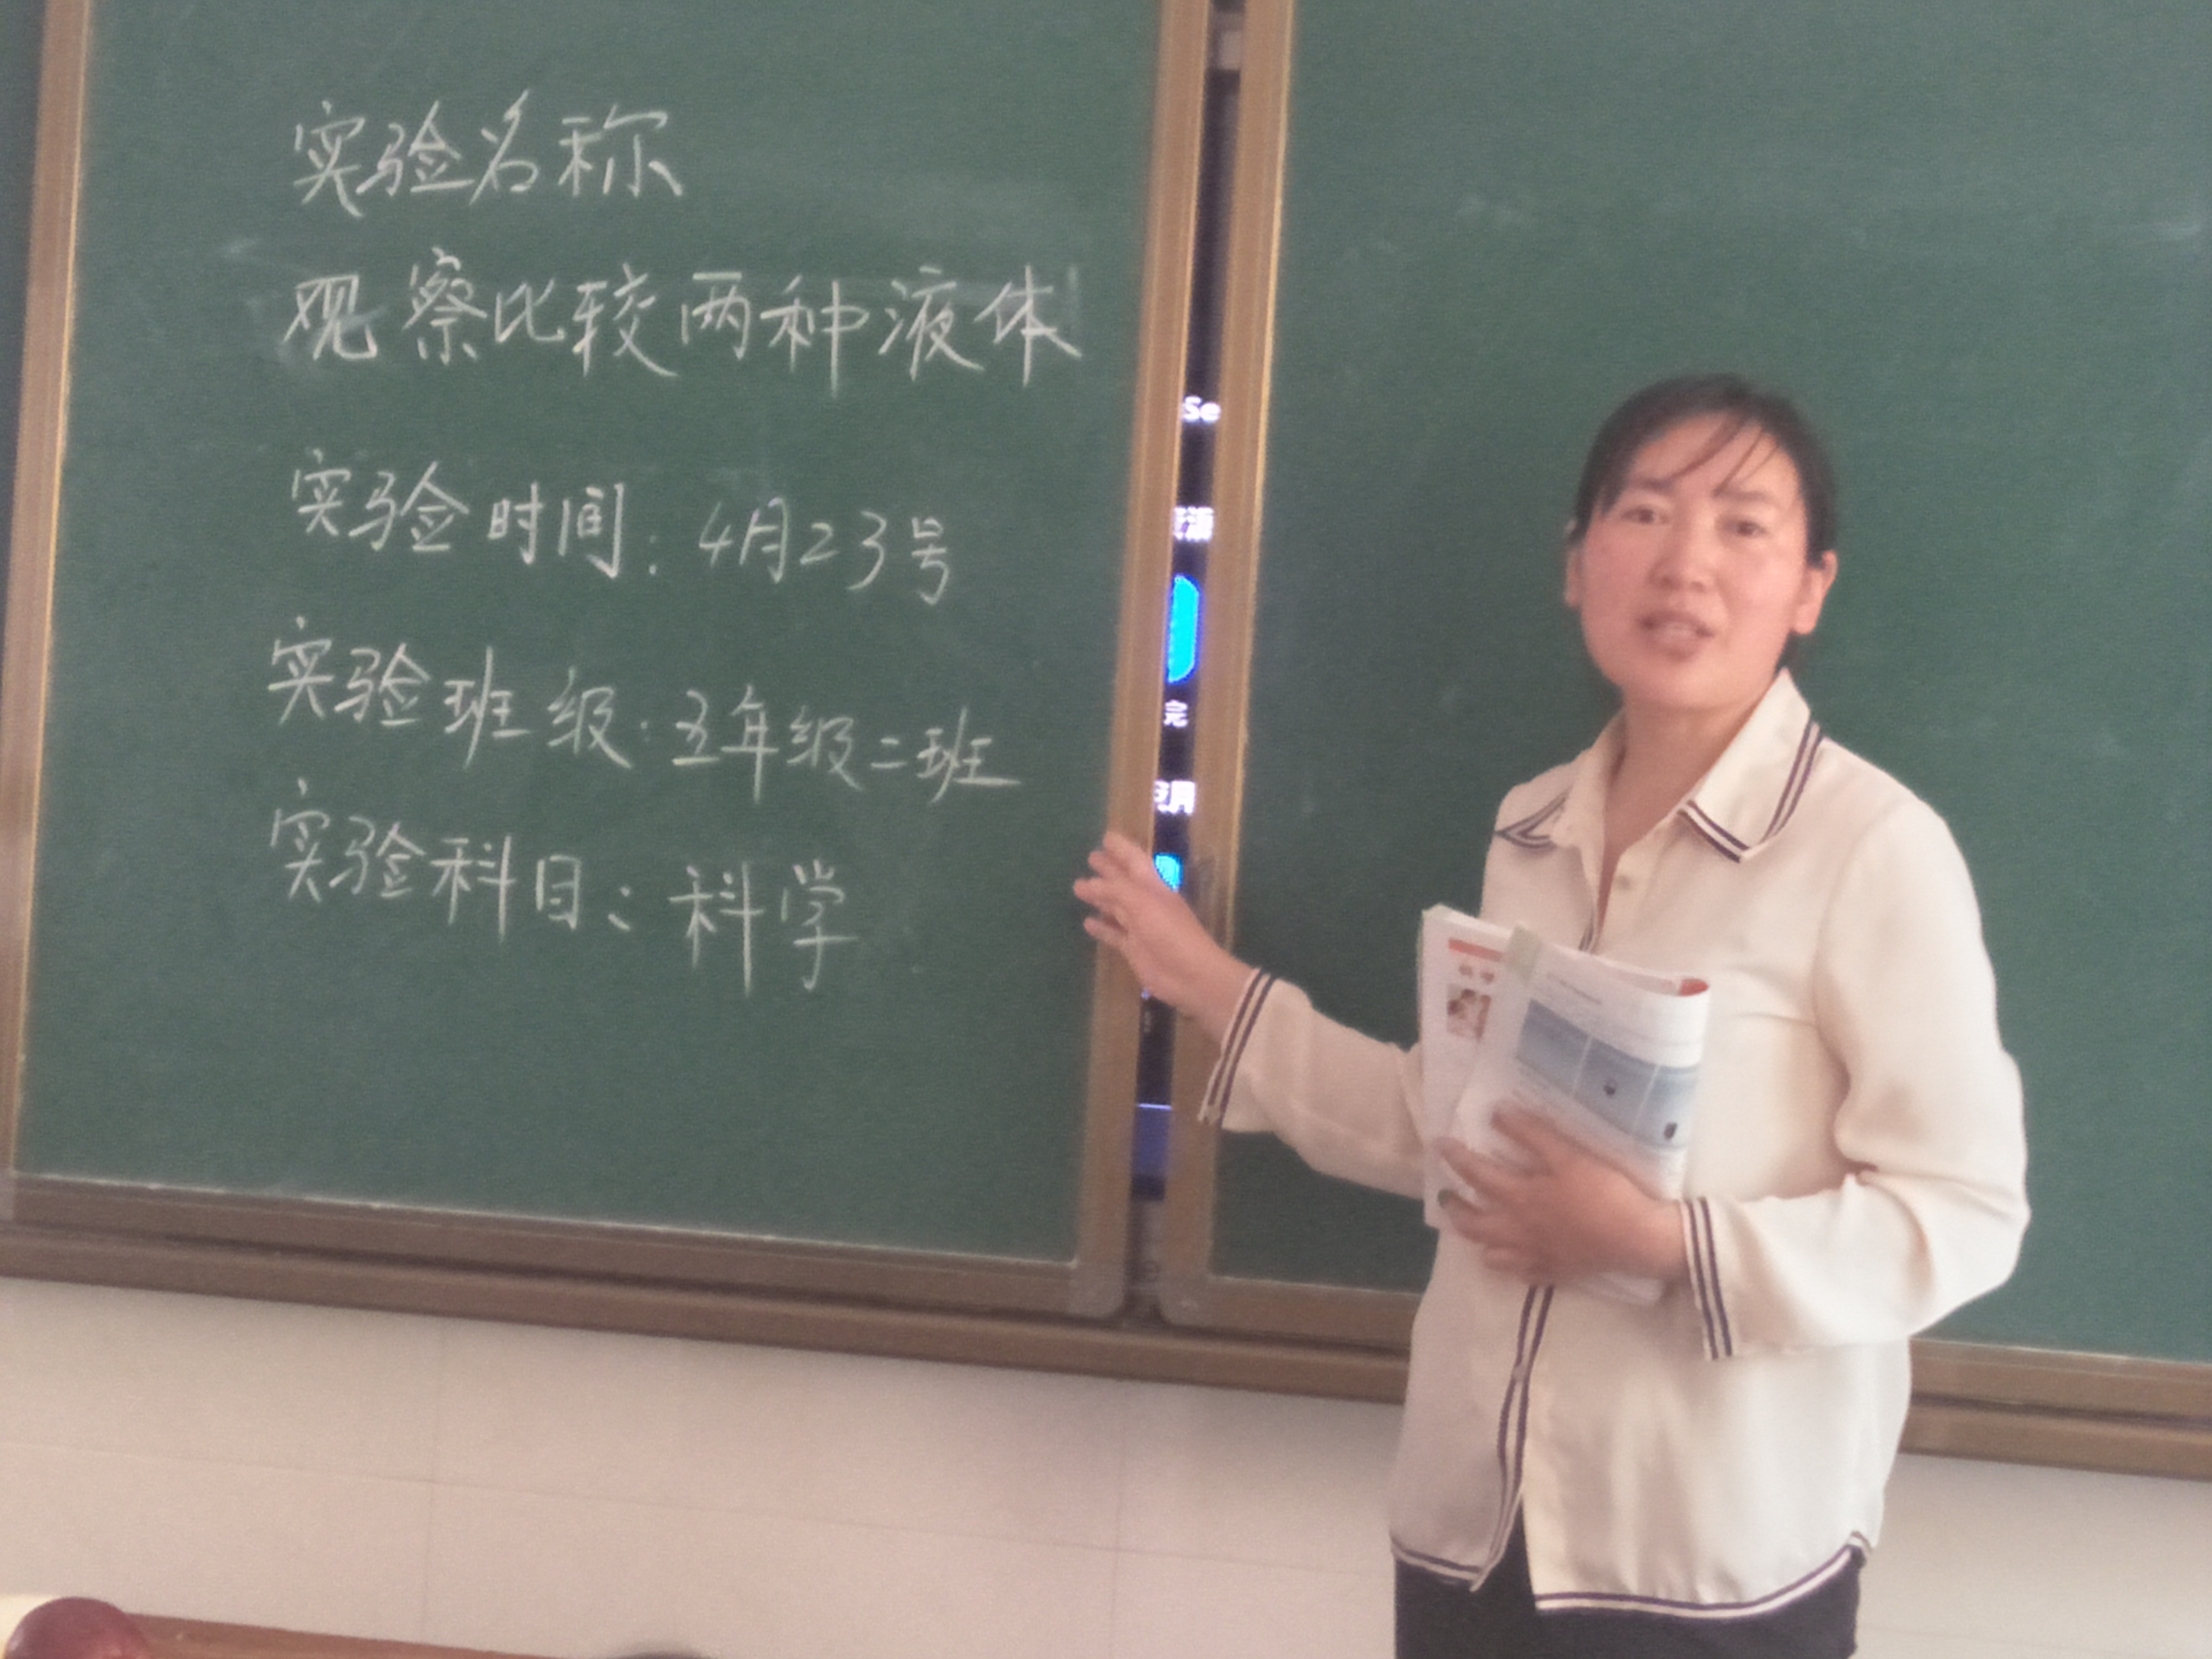 实验名称
观察比较两种液体
实验时间：4月23号
实验班级：五年级二班
实验科目：科学
Se
完
科学